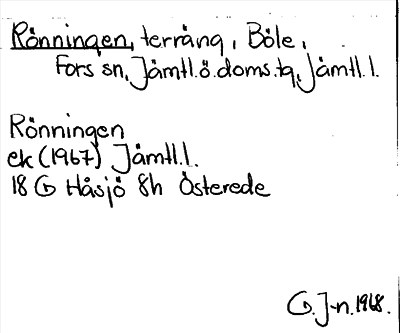 Rönningen, terräng, Böle,
Fors sn, Jämtl.ö.doms.tg, Jämtl.l.
Rönningen
ek (1967) Jämtl.l.
18 G Håsjö 8h Österede
G. J-n. 1968.